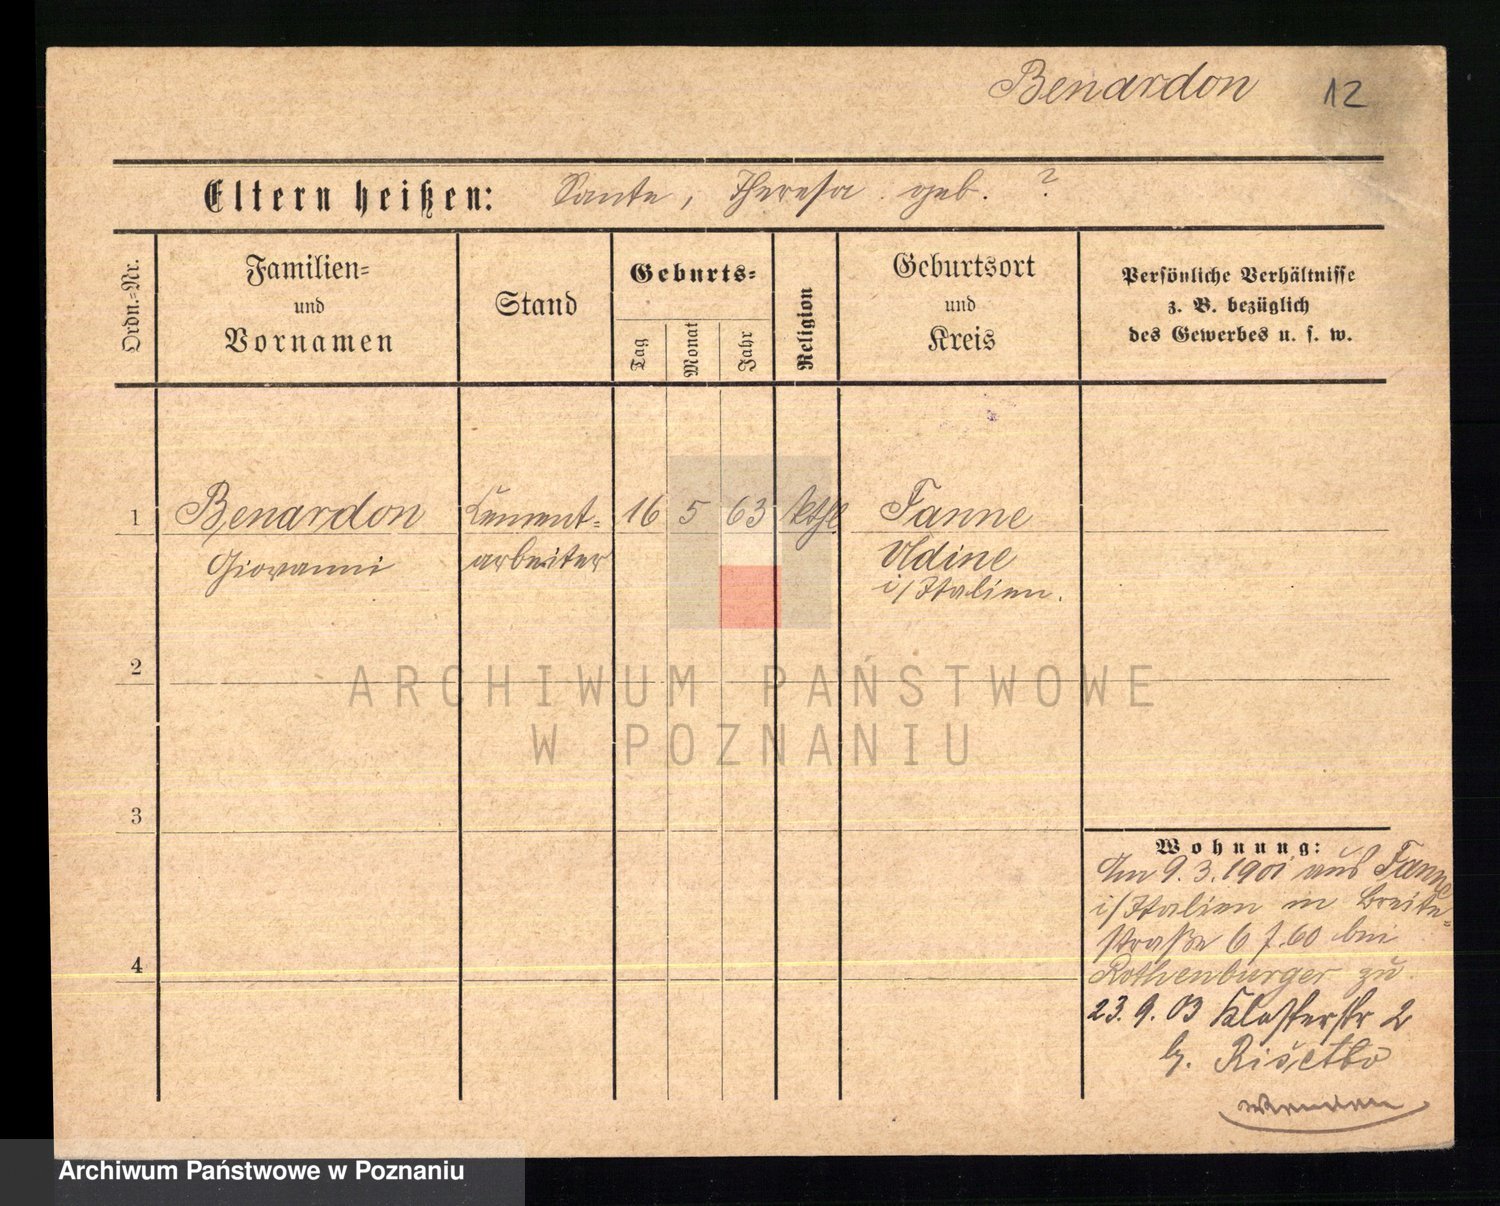 Benardon 12
Eltern heißen: Sante, Theresa geb. ?
Ordn.-Nr.
Familien-
und
Vornamen
Stand
Geburts-
Tag
Monat
Jahr
Religion
Geburtsort
und
Kreis
Persönliche Verhältnisse
z. B. bezüglich
des Gewerbes u. s. w.
1 Benardon Cement- 16 5 63 kthl Fanne
Giovanni arbeiter Udine
i/Italien.
2
ARCHIWUM PAŃSTWOWE
W POZNANIU
3
Wohnung:
Am 9.3.1901 aus Fanne
i/Italien in Breite-
straße 6 f. 60 bei
4
Rothenburger zu
23.9.03 Klosterstr 2
b.
Archiwum Państwowe w Poznaniu